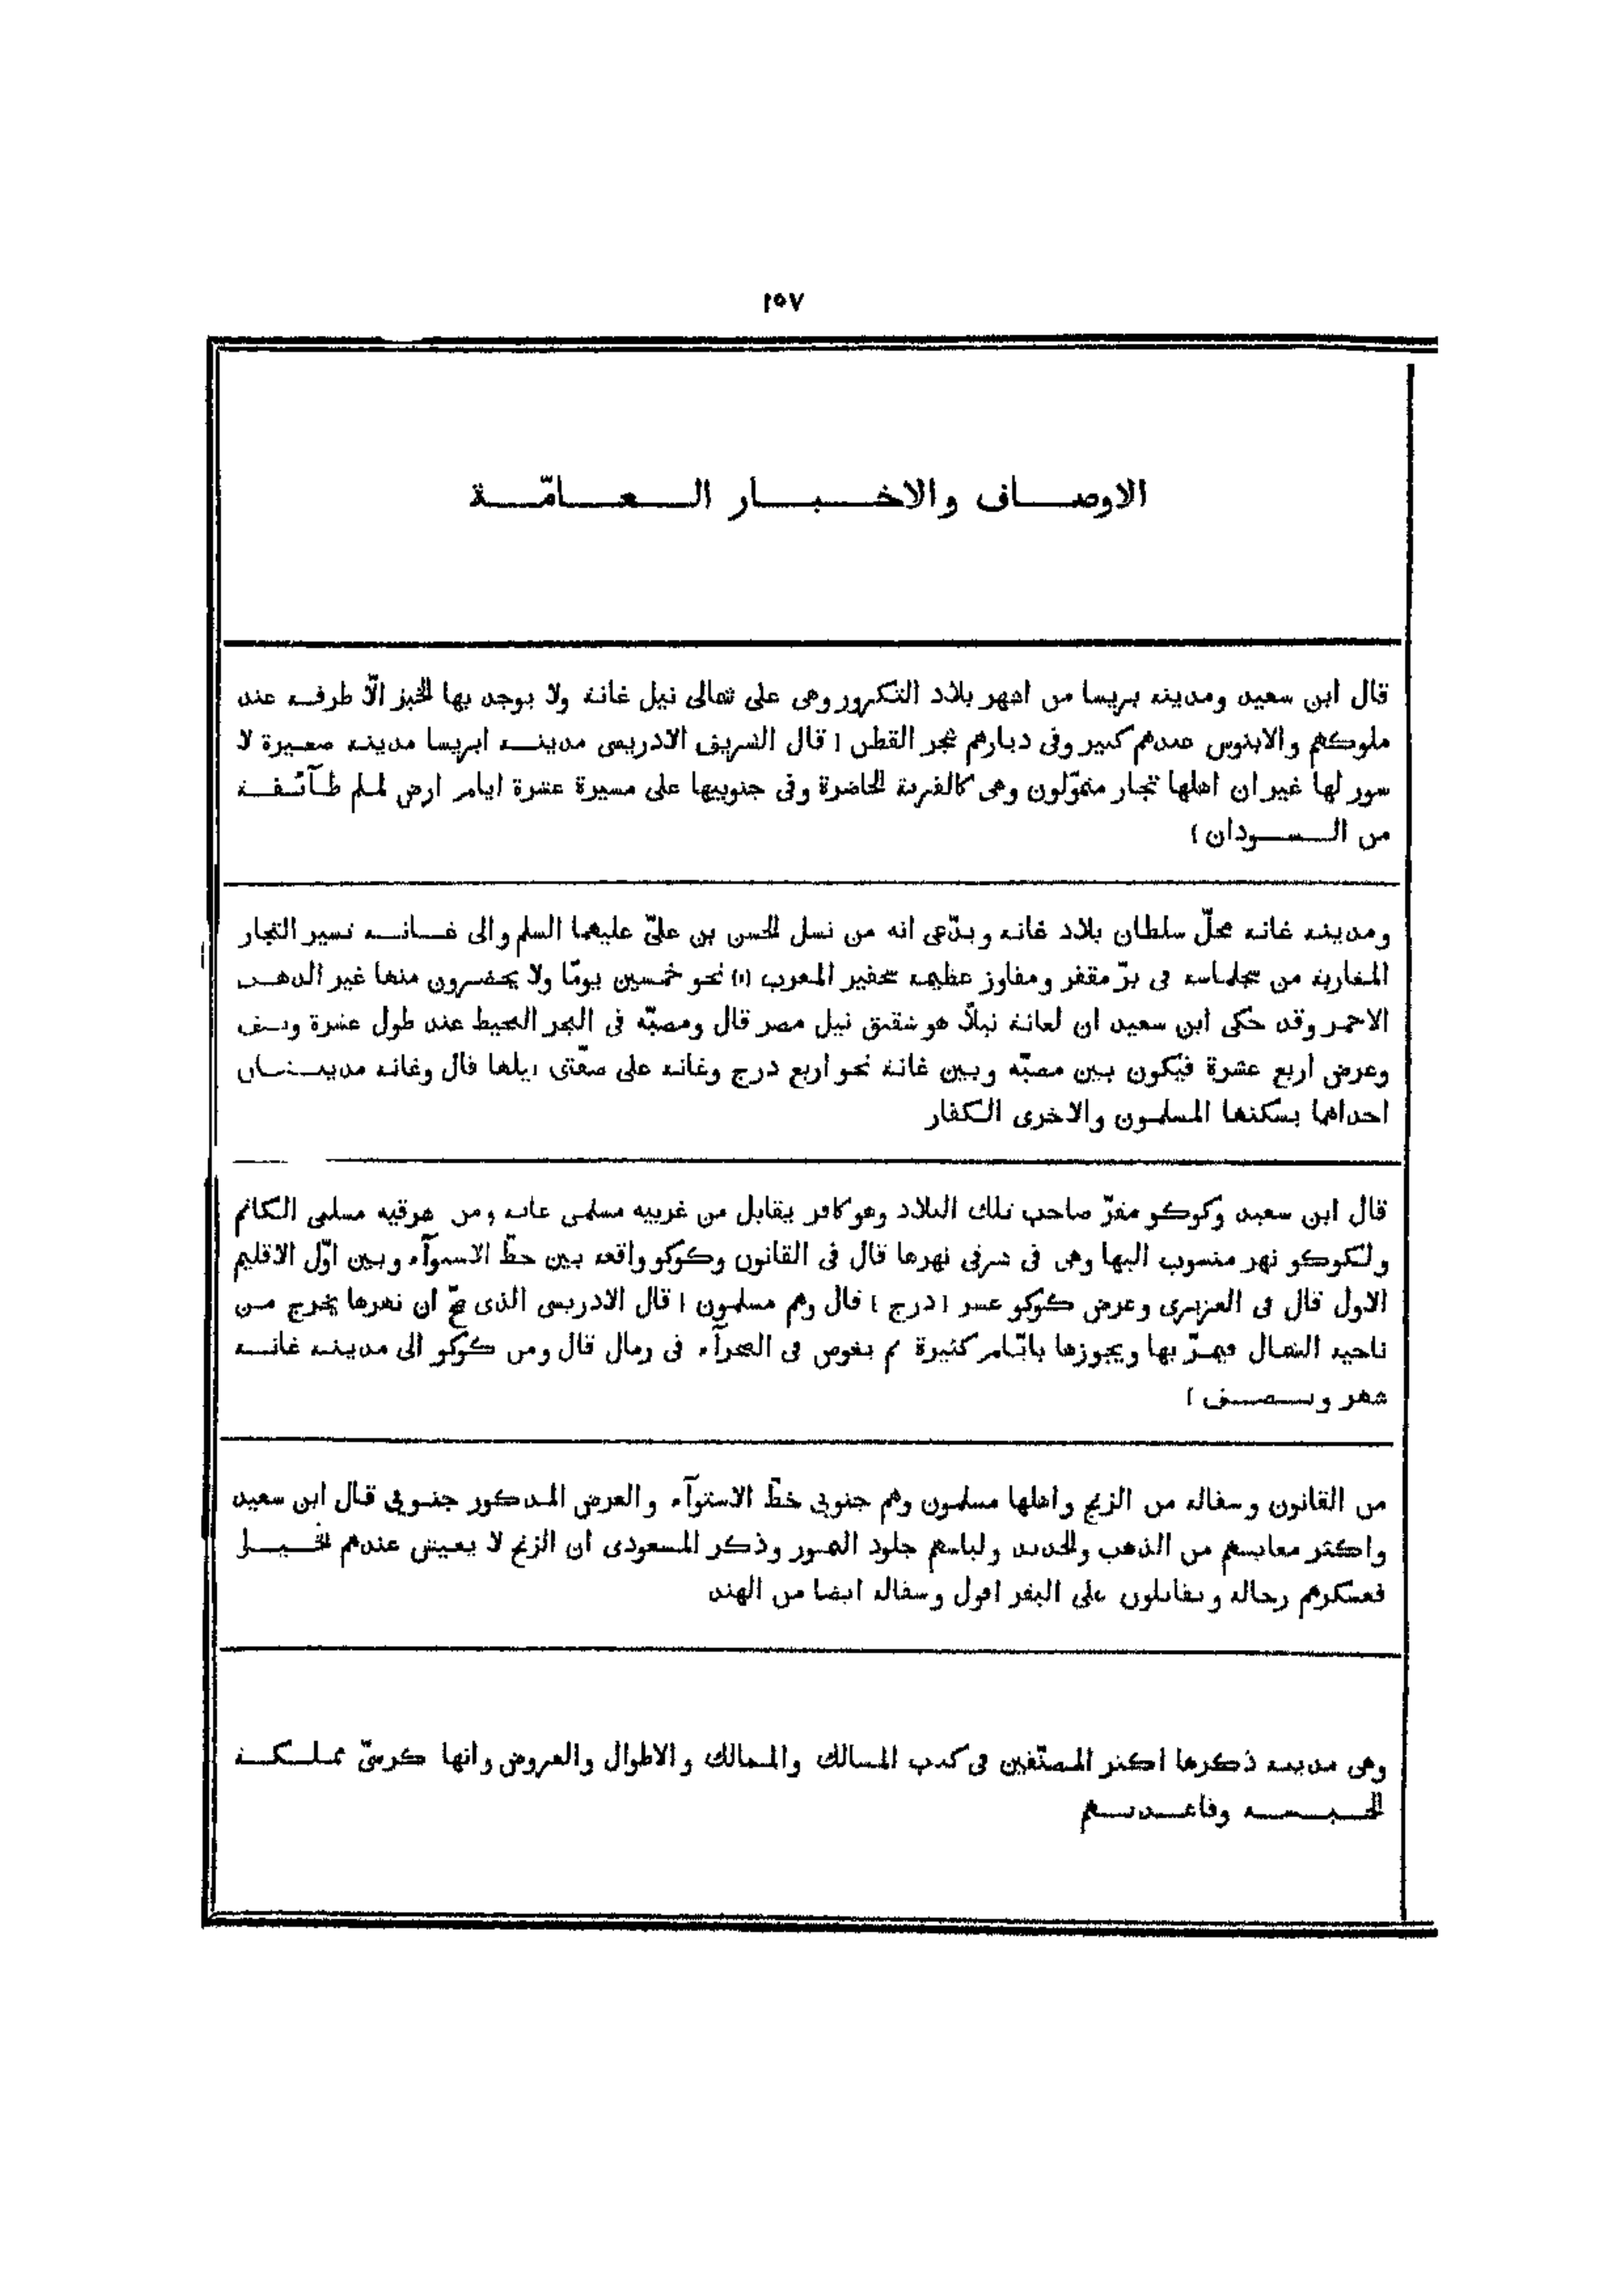 ١٥٧
الاوصاف والاخبار العامّة
قال ابن سعيد ومدينة بريسا من اشهر بلاد التكرور وهى على شمالى نيل غانة ولا يوجد بها الخبز الّا طرفة عند
ملوكهم والابنوس عندهم كثير وفى ديارهم شجر القطن [ قال الشريف الادريسى مدينة ابريسا مدينة صغيرة لا
سور لها غير ان اهلها تجار متموّلون وهى كالقرية الحاضرة وفى جنوبيها على مسيرة عشرة ايام ارض لملم طآئفة
من السودان ]
ومدينة غانة محلّ سلطان بلاد غانة ويدّعى انه من نسل الحسن بن علىّ عليهما السلم والى غانة تسير التجار
المغاربة من سجلماسة فى برّ مقفر ومفاوز عظيمة المغرب (١) نحو خمسين يومًا ولا يحضرون منها غير الذهب
الاحمر وقد حكى ابن سعيد ان لغانة نيلًا هو شقيق نيل مصر قال ومصبّه فى البحر المحيط عند طول عشرة ونصف
وعرض اربع عشرة فيكون بين مصبّه وبين غانة نحو اربع درج وغانة على ضفّتى نيلها قال وغانة مدينتان
احداهما يسكنها المسلمون والاخرى الكفار
قال ابن سعيد وكوكو مقرّ صاحب تلك البلاد وهو كافر يقابل من غربيه مسلمى غانة ومن شرقيه مسلمى الكانم
ولكوكو نهر منسوب اليها وهى فى شرقى نهرها قال فى القانون وكوكو واقعة بين خطّ الاستوآء وبين اوّل الاقليم
الاول قال فى العزيزى وعرض كوكو عشر [ درج ] قال وهم مسلمون [ قال الادريسى الذى صحّ ان نهرها يخرج من
ناحية الشمال فيمرّ بها ويجوزها بايّام كثيرة ثم يغوص فى الصحرآء فى رمال قال ومن كوكو الى مدينة غانة
شهر ونصف ]
من القانون وسفالة من الزنج واهلها مسلمون وهم جنوبى خطّ الاستوآء والعرض المذكور جنوبى قال ابن سعيد
واكثر معايشهم من الذهب والحديد ولباسهم جلود النمور وذكر المسعودى ان الزنج لا يعيش عندهم الخيل
فعسكرهم رجالة ويقاتلون على البقر اقول وسفالة ايضا من الهند
وهى مدينة ذكرها اكثر المصنّفين فى كتب المسالك والممالك والاطوال والعروض وانها كرسىّ مملكة
الحبشة وقاعدتهم